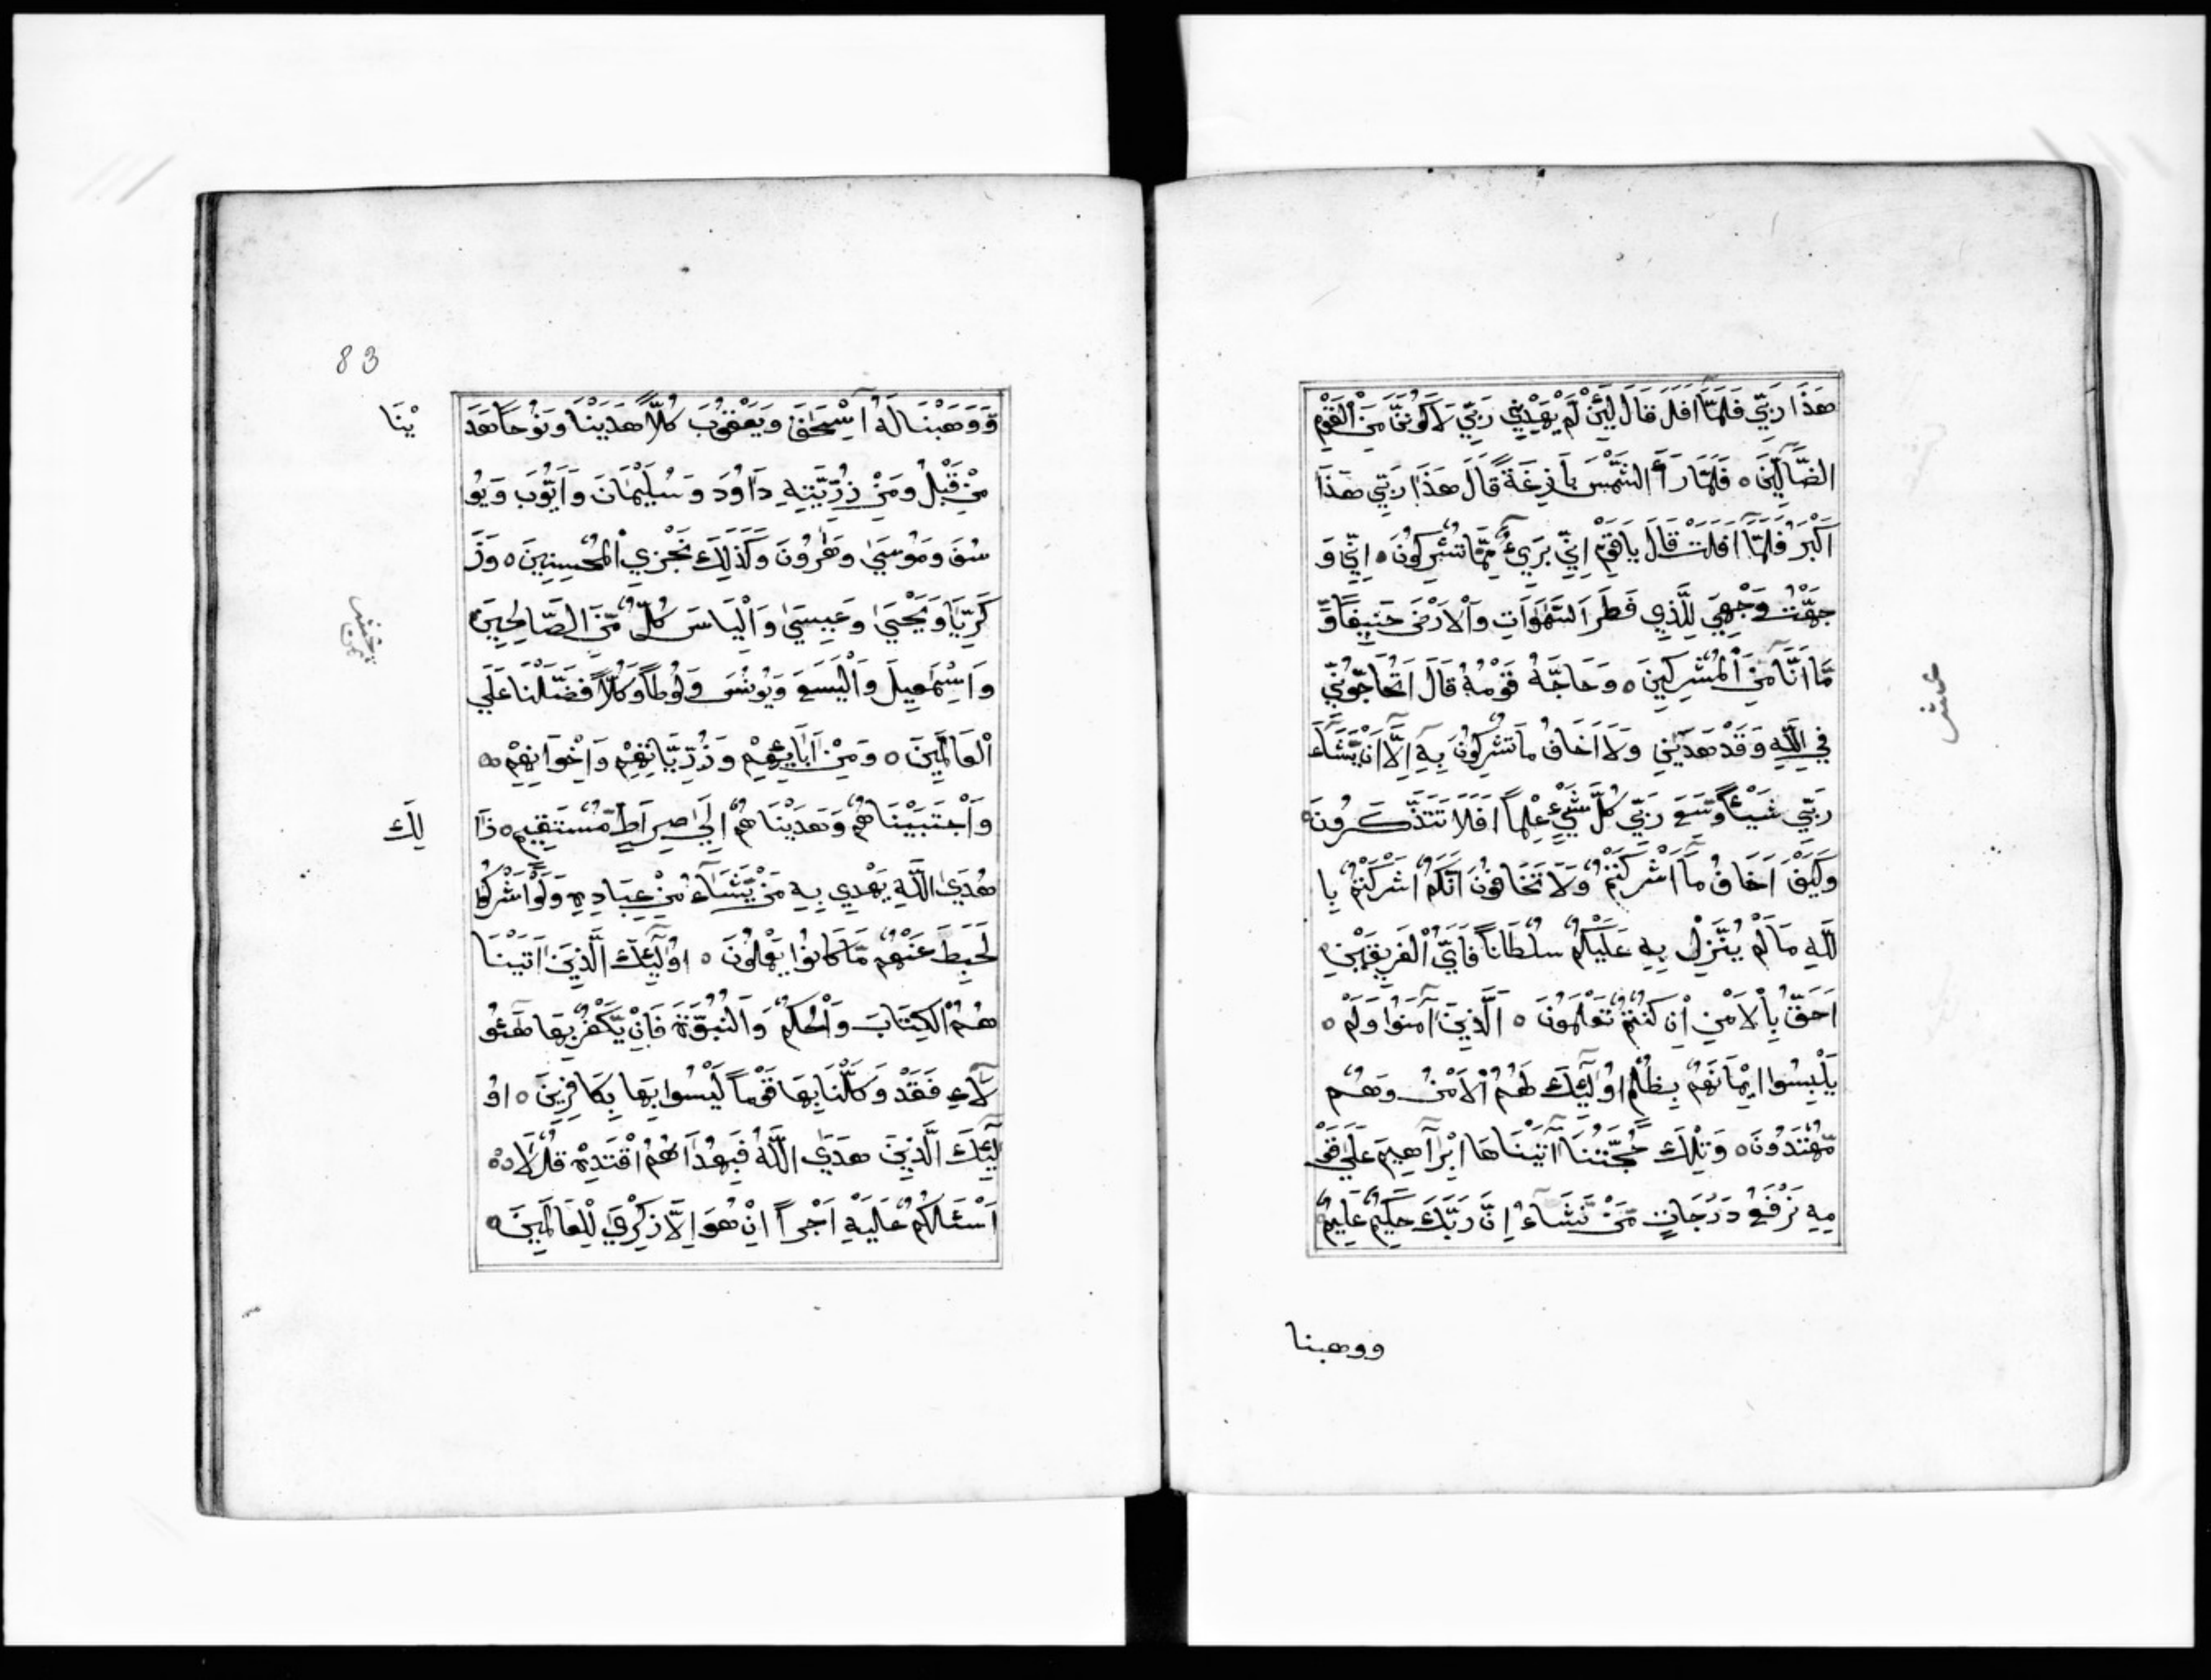 هَذَا رَبِّي فَلَمَّا أَفَلَ قَالَ لَئِنْ لَمْ يَهْدِنِي رَبِّي لَأَكُونَنَّ مِنَ الْقَوْمِ
الضَّالِّينَ ۝ فَلَمَّا رَأَ الشَّمْسَ بَازِغَةً قَالَ هَذَا رَبِّي هَذَا
أَكْبَرُ فَلَمَّا أَفَلَتْ قَالَ يَا قَوْمِ إِنِّي بَرِيءٌ مِمَّا تُشْرِكُونَ ۝ إِنِّي وَ
جَهْتُ وَجْهِيَ لِلَّذِي فَطَرَ السَّمَوَاتِ وَالْأَرْضَ حَنِيفًا وَّ
مَا أَنَا مِنَ الْمُشْرِكِينَ ۝ وَحَاجَّهُ قَوْمُهُ قَالَ أَتُحَاجُّونِّي
فِي اللَّهِ وَقَدْ هَدَينِ وَلَا أَخَافُ مَا تُشْرِكُونَ بِهِ إِلَّا أَنْ يَّشَاءَ
رَبِّي شَيْئًا وَسِعَ رَبِّي كُلَّ شَيْءٍ عِلْمًا أَفَلَا تَتَذَكَّرُونَ ۝
وَكَيْفَ أَخَافُ مَا أَشْرَكْتُمْ وَلَا تَخَافُونَ أَنَّكُمْ أَشْرَكْتُمْ بِا
للَّهِ مَا لَمْ يُنَزِّلْ بِهِ عَلَيْكُمْ سُلْطَانًا فَأَيُّ الْفَرِيقَيْنِ
أَحَقُّ بِالْأَمْنِ إِنْ كُنْتُمْ تَعْلَمُونَ ۝ الَّذِينَ آمَنُوا وَلَمْ ۝
يَلْبِسُوا إِيْمَانَهُمْ بِظُلْمٍ أُولَئِكَ لَهُمُ الْأَمْنُ وَهُمْ
مُّهْتَدُونَ ۝ وَتِلْكَ حُجَّتُنَا آتَيْنَاهَا إِبْرَاهِيمَ عَلَى قَوْ
مِهِ نَرْفَعُ دَرَجَاتٍ مَّنْ نَّشَاءُ إِنَّ رَبَّكَ حَكِيمٌ عَلِيمٌ
عشر
ووهبنا
83
وَوَهَبْنَا لَهُ إِسْحَقَ وَيَعْقُوبَ كُلًّا هَدَيْنَا وَنُوحًا هَدَ
يْنَا
مِنْ قَبْلُ وَمِنْ ذُرِّيَّتِهِ دَاوُدَ وَسُلَيْمَانَ وَأَيُّوبَ وَيُو
سُفَ وَمُوسَى وَهَرُونَ وَكَذَلِكَ نَجْزِي الْمُحْسِنِينَ ۝ وَزَ
كَرِيَّا وَيَحْيَى وَعِيسَى وَالْيَاسَ كُلٌّ مِّنَ الصَّالِحِينَ
وَإِسْمَعِيلَ وَالْيَسَعَ وَيُونُسَ وَلُوطًا وَكُلًّا فَضَّلْنَا عَلَى
الْعَالَمِينَ ۝ وَمِنْ آبَائِهِمْ وَذُرِّيَّاتِهِمْ وَإِخْوَانِهِمْ
وَاجْتَبَيْنَاهُمْ وَهَدَيْنَاهُمْ إِلَى صِرَاطٍ مُّسْتَقِيمٍ ۝ ذَا
لِكَ
هُدَى اللَّهِ يَهْدِي بِهِ مَنْ يَّشَاءُ مِنْ عِبَادِهِ وَلَوْ أَشْرَكُوا
لَحَبِطَ عَنْهُمْ مَّا كَانُوا يَعْمَلُونَ ۝ أُولَئِكَ الَّذِينَ آتَيْنَا
هُمُ الْكِتَابَ وَالْحُكْمَ وَالنُّبُوَّةَ فَإِنْ يَّكْفُرْ بِهَا هَؤُ
لَاءِ فَقَدْ وَكَّلْنَا بِهَا قَوْمًا لَيْسُوا بِهَا بِكَافِرِينَ ۝ أُو
لَئِكَ الَّذِينَ هَدَى اللَّهُ فَبِهُدَاهُمُ اقْتَدِهْ قُلْ لَا
أَسْئَلُكُمْ عَلَيْهِ أَجْرًا إِنْ هُوَ إِلَّا ذِكْرَى لِلْعَالَمِينَ ۝